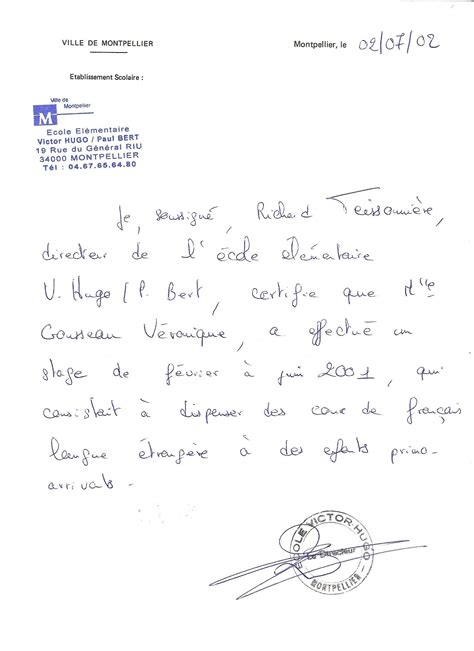 VILLE DE MONTPELLIER
Montpellier, le 02/07/02
Etablissement Scolaire :
Ville de
Montpellier
M
Ecole Elémentaire
Victor HUGO / Paul BERT
19 Rue du Général RIU
34000 MONTPELLIER
Tél : 04.67.65.64.80
Je, soussigné, Richard Teissonnière,
directeur de l'école élémentaire
V. Hugo / P. Bert, certifie que Mlle
Gousseau Véronique, a effectué un
stage de février à juin 2001, qui
consistait à dispenser des cour de français
langue étrangère à des enfants primo-
arrivants.
ECOLE VICTOR-HUGO
Le Directeur
MONTPELLIER